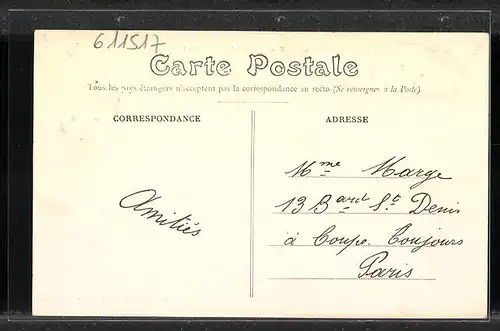 611517
Carte Postale
Tous les pays étrangers n'acceptent pas la correspondance au recto (Se renseigner à la Poste)
CORRESPONDANCE
ADRESSE
Mme Marge
13 Bard St Denis
Amitiés
à Coupe Toujours
Paris